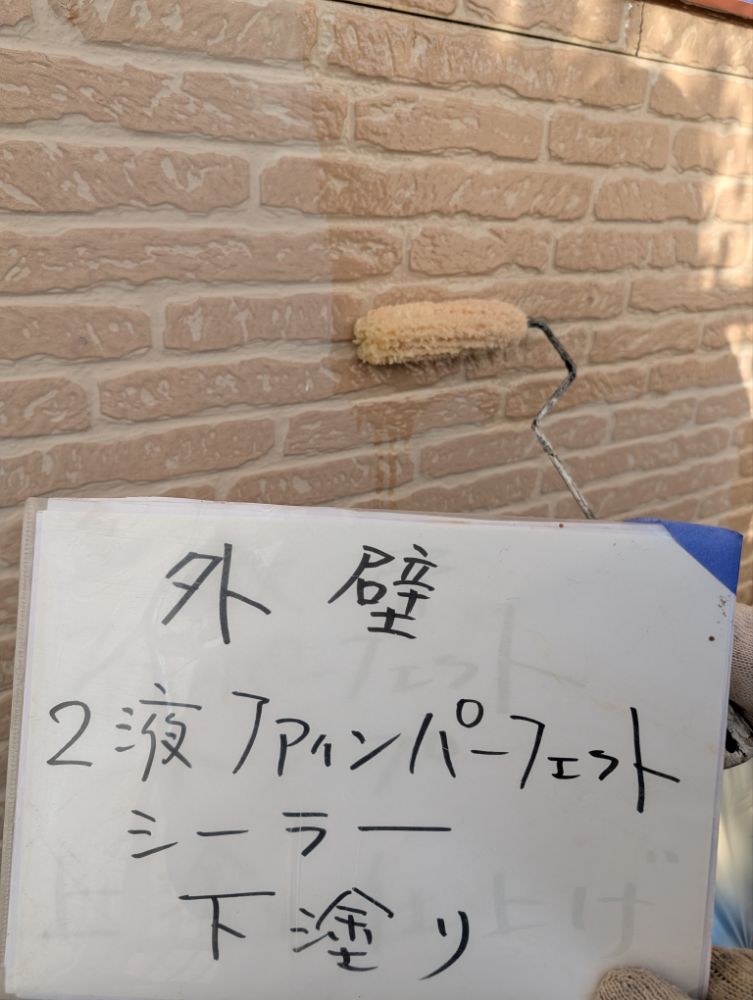 外壁
2液ファインパーフェクト
シーラー
下塗り